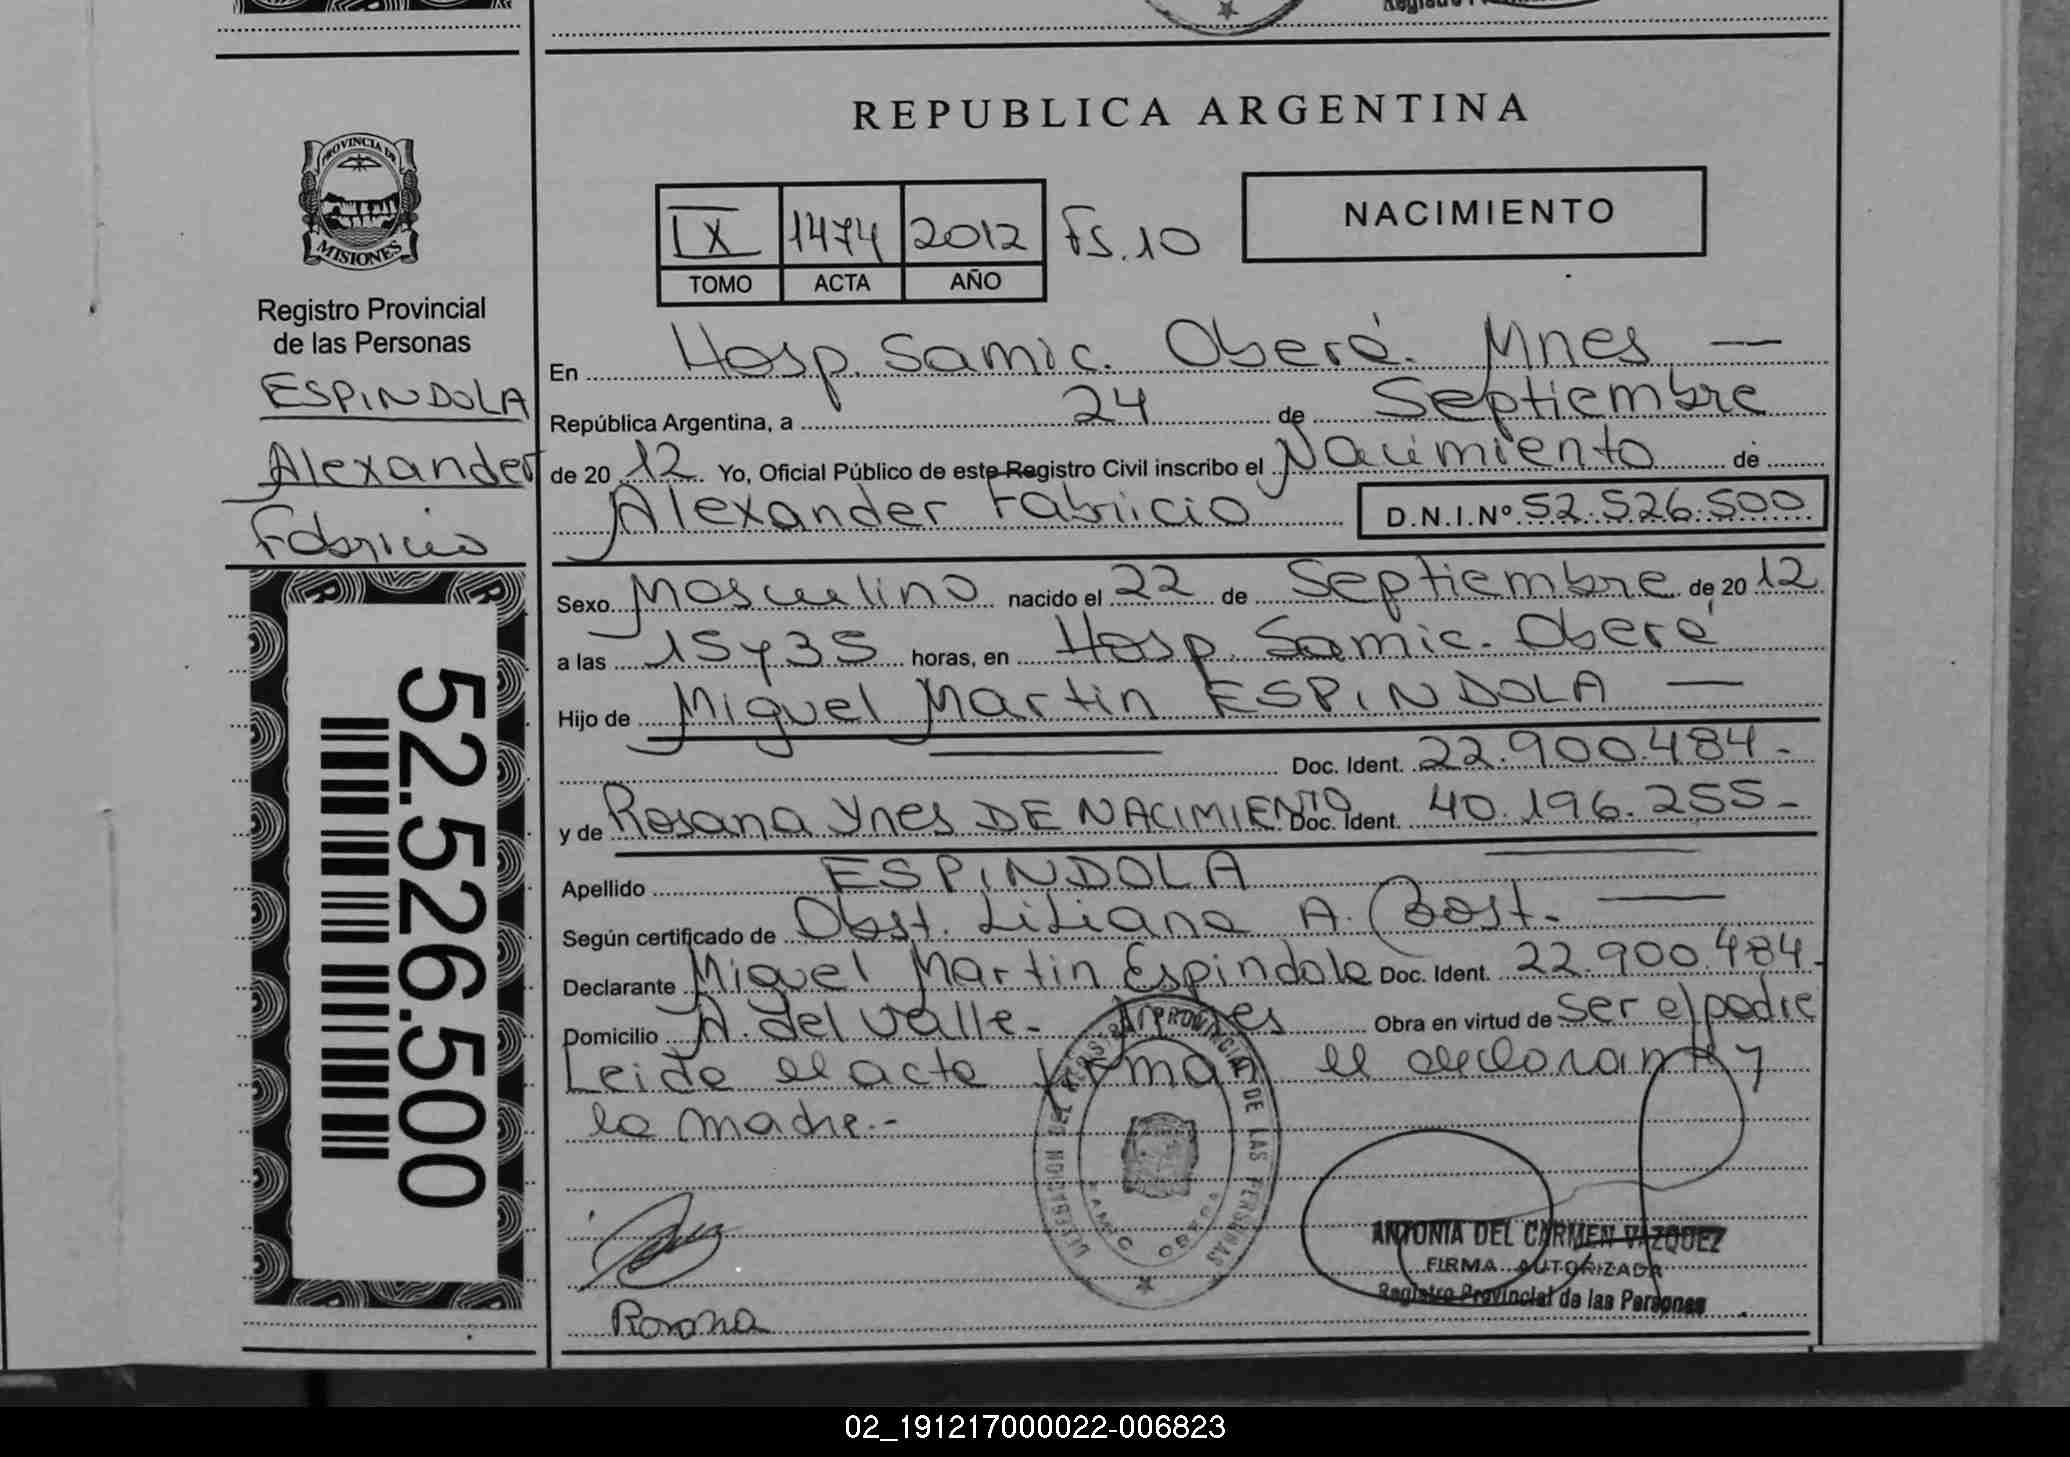 REPUBLICA ARGENTINA
PROVINCIA DE
MISIONES
Registro Provincial
de las Personas
ESPINDOLA
Alexander
Fabricio
52.526.500
IX 1474 2012 Fs.10
TOMO ACTA AÑO
NACIMIENTO
En Hosp. Samic. Oberá. Mnes —
República Argentina, a 24 de Septiembre
de 2012 Yo, Oficial Público de este Registro Civil inscribo el Nacimiento de
Alexander Fabricio D.N.I.Nº 52.526.500
Sexo Masculino nacido el 22 de Septiembre de 2012
a las 15y35 horas, en Hosp. Samic. Oberá
Hijo de Miguel Martin ESPINDOLA —
Doc. Ident. 22.900.484.-
y de Rosana Ynes DE NACIMIENTO Doc. Ident. 40.196.255-
Apellido ESPINDOLA
Según certificado de Obst. Liliana A. Bost.
Declarante Miguel Martin Espindola Doc. Ident. 22.900.484.
Domicilio A. del Valle. Mnes Obra en virtud de ser el padre
Leida el acta firman el declarante y
la madre.-
PROVINCIAL DE LAS PERSONAS
SAMIC OBERA
ANTONIA DEL CARMEN VAZQUEZ
FIRMA AUTORIZADA
Registro Provincial de las Personas
Rosana
02_191217000022-006823